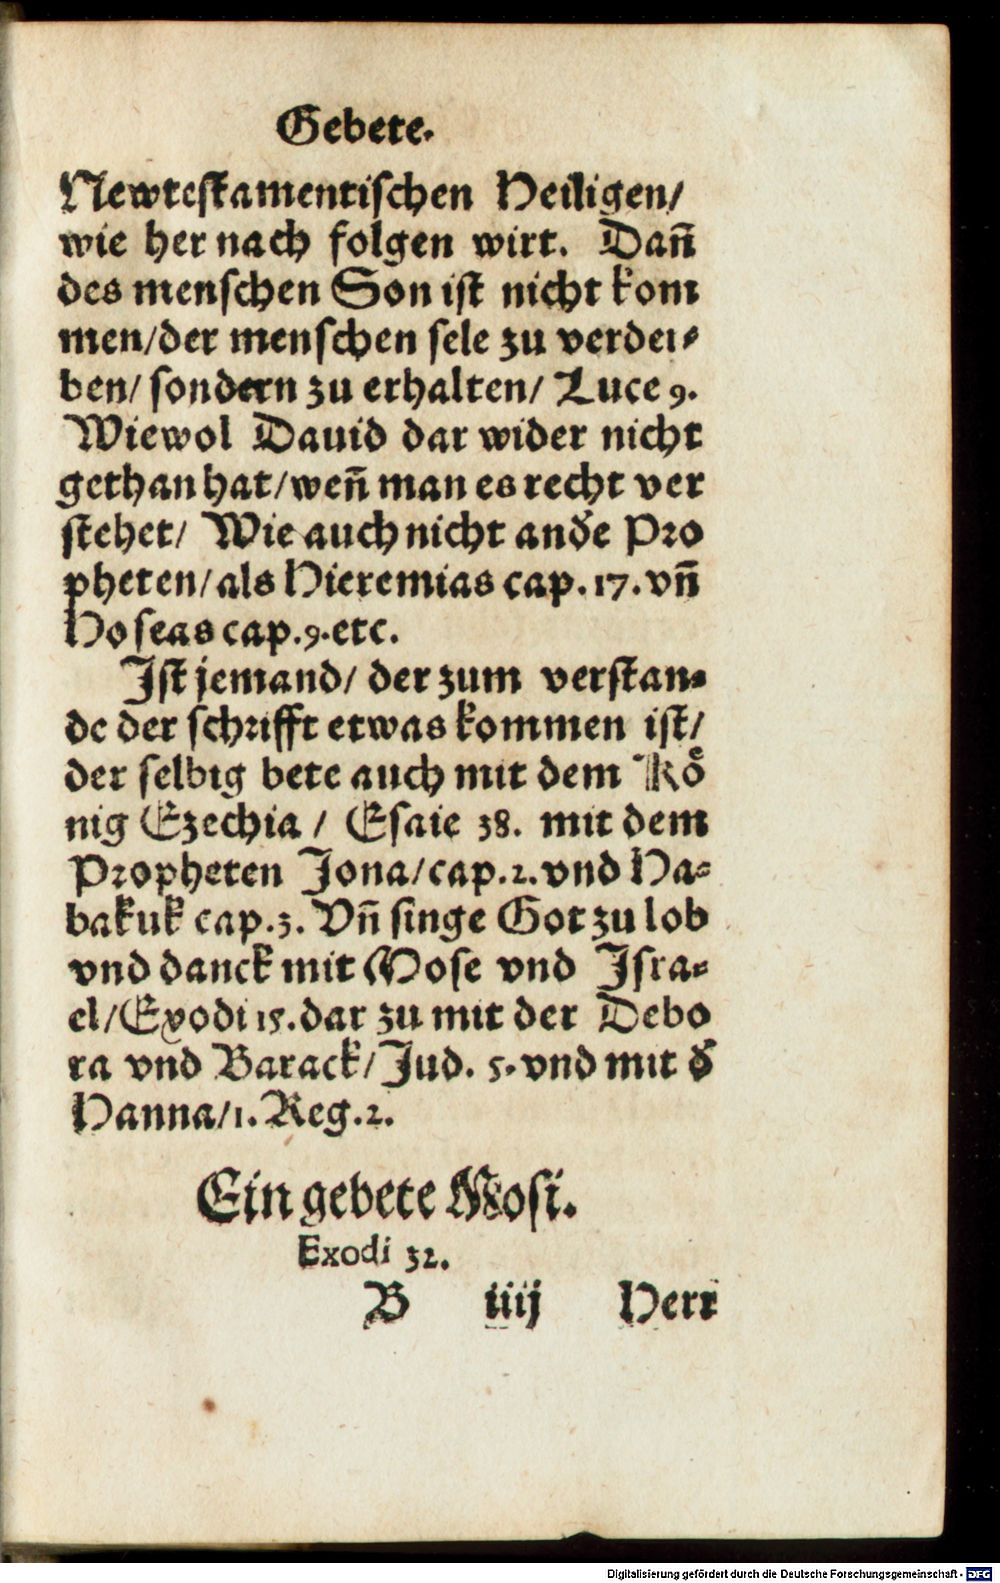 Gebete.
Newtestamentischen Heiligen/
wie her nach folgen wirt. Dañ
des menschen Son ist nicht kom
men/der menschen sele zu verder⸗
ben/ sondern zu erhalten/ Luce 9.
Wiewol Dauid dar wider nicht
gethan hat/weñ man es recht ver
stehet/ Wie auch nicht anđe Pro
pheten/als Hieremias cap. 17. vñ
Hoseas cap.9.etc.
Ist jemand/ der zum verstan⸗
de der schrifft etwas kommen ist/
der selbig bete auch mit dem Koͤ
nig Ezechia / Esaie 38. mit dem
Propheten Jona/cap.2.vnd Ha⸗
bakuk cap.3. Vñ singe Got zu lob
vnd danck mit Mose vnd Isra⸗
el/Exodi 15.dar zu mit der Debo
ra vnd Barack/Jud. 5.vnd mit đ
Hanna/1. Reg.2.
Ein gebete Mosi.
Exodi 32.
B iiij Herr
Digitalisierung gefördert durch die Deutsche Forschungsgemeinschaft - DFG